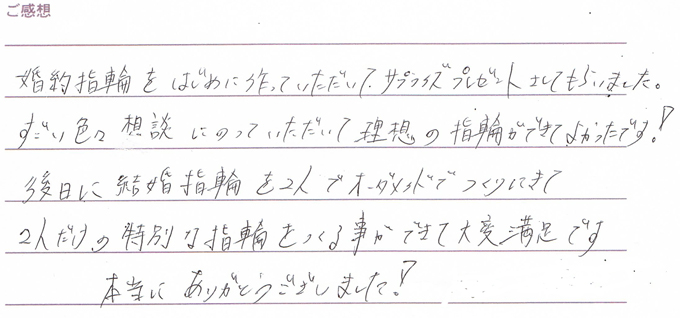 ご感想
婚約指輪をはじめに作っていただいて、サプライズプレゼントさしてもらいました。
すごい色々想談にのっていただいて理想の指輪ができてよかったです!
後日に結婚指輪を2人でオーダーメイドでつくりにきて
2人だけの特別な指輪をつくる事ができて大変満足です
本当にありがとうございました!